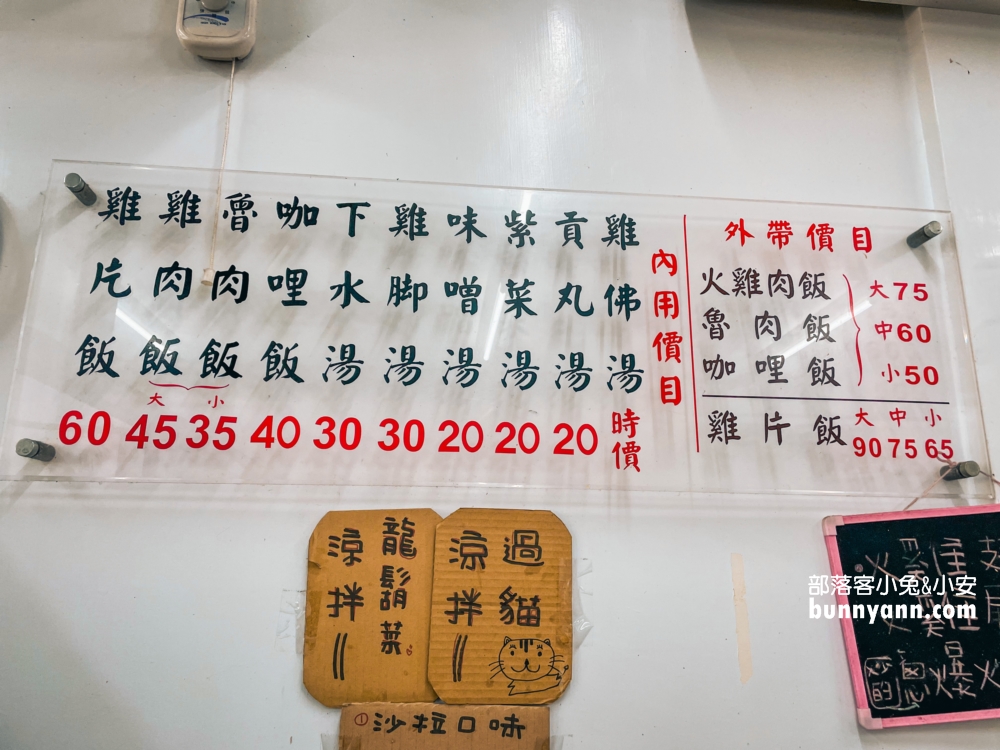 內用價目
雞佛湯 時價
貢丸湯 20
紫菜湯 20
味噌湯 20
雞脚湯 30
下水湯 30
咖哩飯 40
魯肉飯
雞肉飯
大45 小35
雞片飯 60
外帶價目
火雞肉飯
魯肉飯
咖哩飯
大75
中60
小50
雞片飯
大 中 小
90 75 65
過貓
涼拌
龍鬚菜
涼拌
①沙拉口味
部落客小兔&小安
bunnyann.com